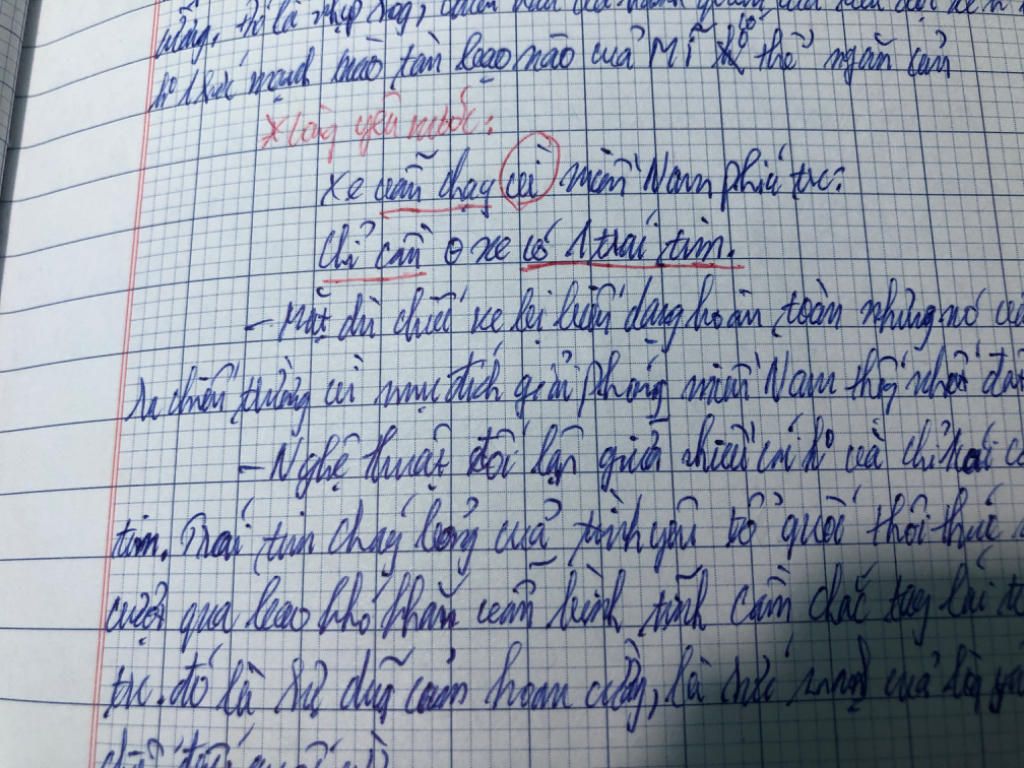 sức mạnh nào tàn bạo nào của Mĩ có thể ngăn cản
* Lòng yêu nước:
Xe vẫn chạy vì miền Nam phía trc:
Chỉ cần xe có 1 trái tim.
- Mặt dù chiếc xe bị biến dạng hoàn toàn nhưng nó
ra chiến trường vì mục đích giải phóng miền Nam thống nhất đất
- Nghệ thuật đối lập giữa nhiều cái ko và chỉ 1 cái có
tim. Trái tim cháy bỏng của tình yêu tổ quốc thôi thúc
vượt qua bao khó khăn vẫn bình tĩnh cầm chắc tay lái
trc. đó là sự dũng cảm hoan cường, là sức mạnh của lòng yêu